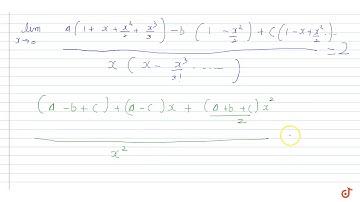 lim x→0 a(1 + x + x²/2 + x³/3) - b (1 - x²/2) + c(1 - x + x²/2 ..)
= 2
x ( x - x³/3! ...... )
(a - b + c) + (a - c) x + (a + b + c)/2 x²
x²